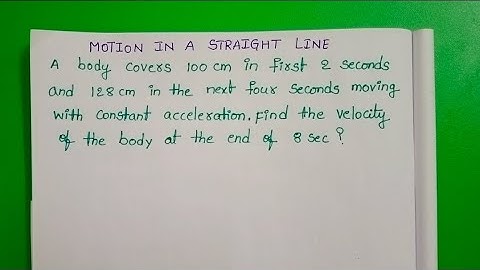 MOTION IN A STRAIGHT LINE
A body covers 100 cm in first 2 seconds
and 128 cm in the next four seconds moving
with constant acceleration. Find the velocity
of the body at the end of 8 sec?